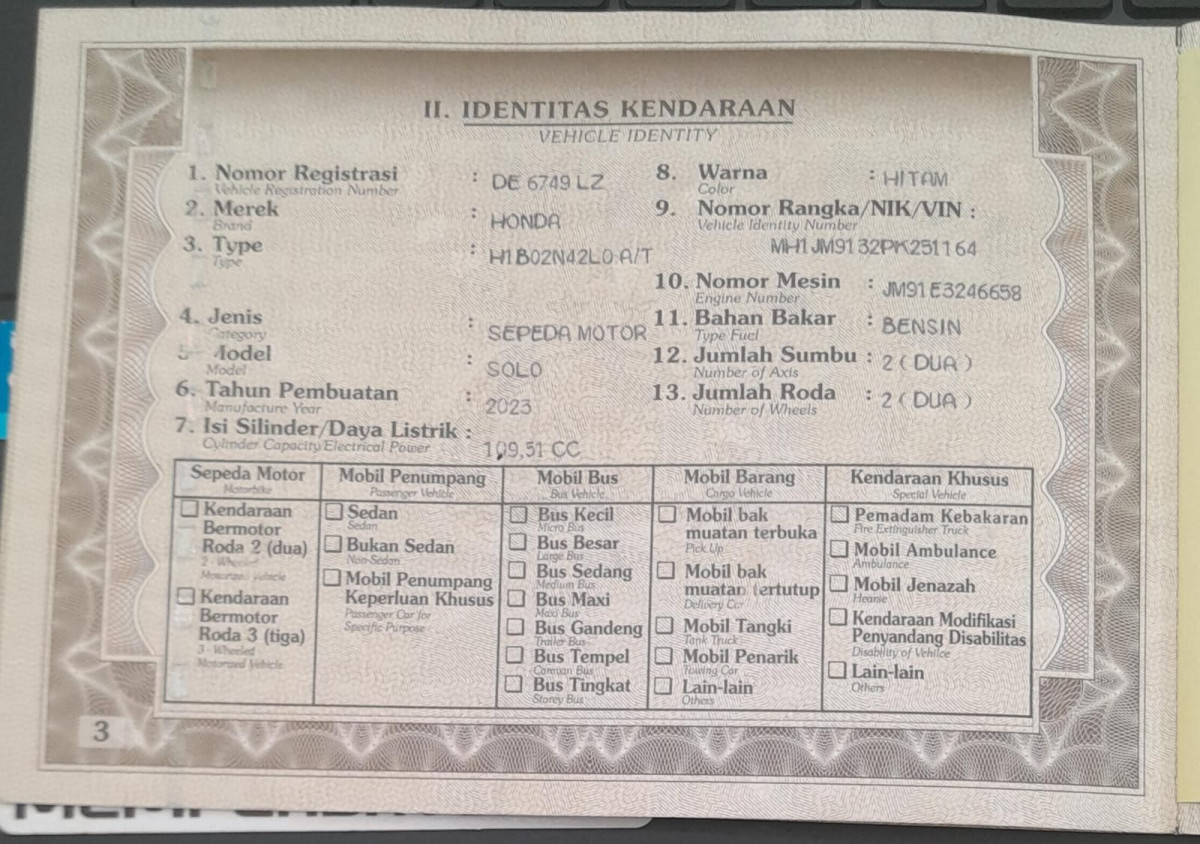 II. IDENTITAS KENDARAAN
VEHICLE IDENTITY
1. Nomor Registrasi : DE 6749 LZ
Vehicle Registration Number
2. Merek : HONDA
Brand
3. Type : H1B02N42L0 A/T
Type
4. Jenis : SEPEDA MOTOR
Category
5. Model : SOLO
Model
6. Tahun Pembuatan : 2023
Manufacture Year
7. Isi Silinder/Daya Listrik : 109,51 CC
Cylinder Capacity/Electrical Power
8. Warna : HITAM
Color
9. Nomor Rangka/NIK/VIN :
Vehicle Identity Number
MH1JM9132PK251164
10. Nomor Mesin : JM91E3246658
Engine Number
11. Bahan Bakar : BENSIN
Type Fuel
12. Jumlah Sumbu : 2 ( DUA )
Number of Axis
13. Jumlah Roda : 2 ( DUA )
Number of Wheels
Sepeda Motor
Motorbike
Kendaraan
Bermotor
Roda 2 (dua)
2 - Wheeled
Motorized Vehicle
Kendaraan
Bermotor
Roda 3 (tiga)
3 - Wheeled
Motorized Vehicle
Mobil Penumpang
Passenger Vehicle
Sedan
Sedan
Bukan Sedan
Non-Sedan
Mobil Penumpang
Keperluan Khusus
Passenger Car for
Specific Purpose
Mobil Bus
Bus Vehicle
Bus Kecil
Micro Bus
Bus Besar
Large Bus
Bus Sedang
Medium Bus
Bus Maxi
Maxi Bus
Bus Gandeng
Trailer Bus
Bus Tempel
Caravan Bus
Bus Tingkat
Storey Bus
Mobil Barang
Cargo Vehicle
Mobil bak
muatan terbuka
Pick Up
Mobil bak
muatan tertutup
Delivery Car
Mobil Tangki
Tank Truck
Mobil Penarik
Towing Car
Lain-lain
Others
Kendaraan Khusus
Special Vehicle
Pemadam Kebakaran
Fire Extinguisher Truck
Mobil Ambulance
Ambulance
Mobil Jenazah
Hearse
Kendaraan Modifikasi
Penyandang Disabilitas
Disability of Vehilce
Lain-lain
Others
3